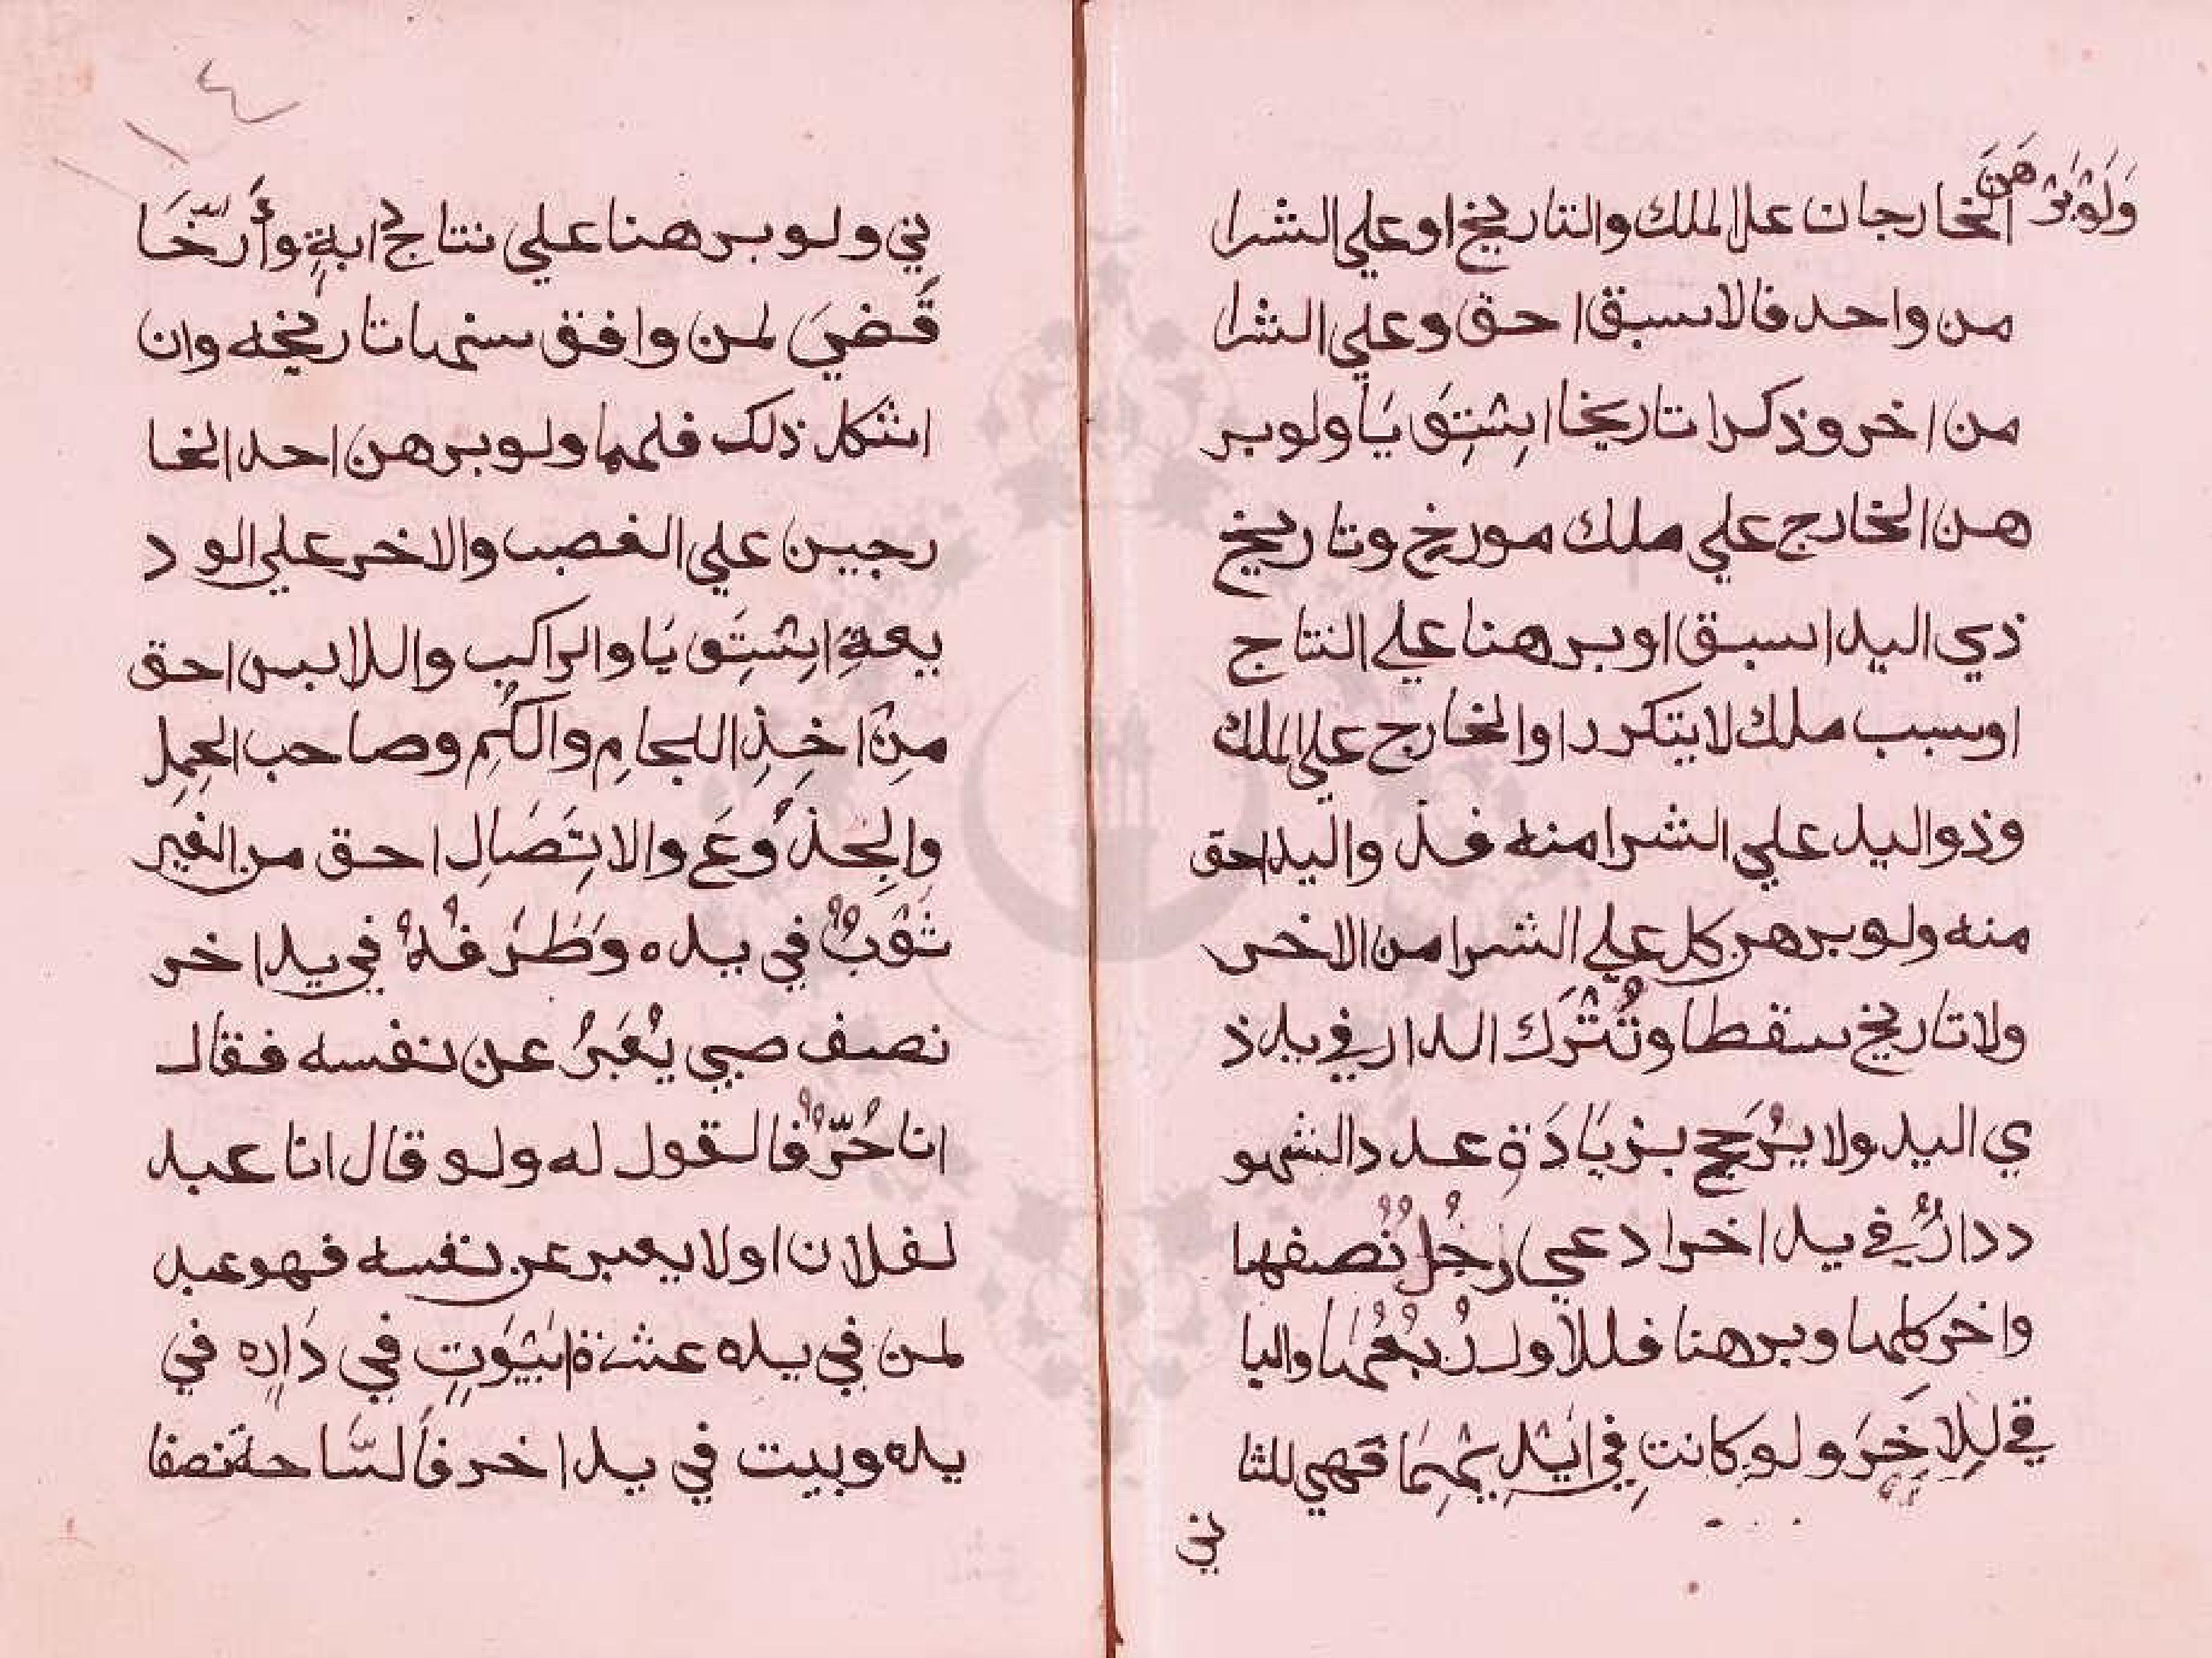 وَلَوْ بَرْهَنَ الخارجان علا الملك والتاريخ او علي الشرا
من واحد فالاسبق احق وعلي الشرا
من اخر وذكرا تاريخا اِسْتِوَيَا ولو بر
هن الخارج علي ملك مورخ وتاريخ
ذي اليد اسبق او برهنا علي النتاج
اوسبب ملك لا يتكرر او الخارج علي الملك
وذو اليد علي الشرا منه فذ واليد احق
منه ولو برهن كل علي الشرا من الاخر
ولا تاريخ سقطا وتُتْرَك الدار في يد ذ
ي اليد ولا يُرَجح بزيَادَة عدد الشهو
د دارٌ في يد اخر ادعي رجُلٌ نُصفها
واخر كلها وبرهنا فللاول رُبْعُهَا والبا
قي لِلاخِرَ ولو كانتِ في ايْدِيهِمَا فهي للثا
ني
٤
ني ولو برهنا علي نتاج دابةٍ وأَرَّخَا
قَضيَ لمن وافق سنها تاريخه وان
اشكل ذلك فلهما ولو برهن احد الخا
رجين علي الغصب والاخر علي الود
يعةِ اِسْتَوَيَا والراكب واللابس احق
مِنْ اخِذِ اللجامِ والكُمِ وصاحب الحِمِل
والجِذُوعَ والاتِصَالِ احق من الغير
ثَوْبٌ في يده وَطَرَفُهُ في يد اخر
نصف صبي يُعَبِرُ عن نفسه فقال
انا حُرٌّ فالقول له ولو قال انا عبد
لفلان او لا يعبر عن نفسه فهو عبد
لمن في يده عشرة ابْيُوَتٍ في دَارِه في
يده وبيت في يد اخر فالسَّاحة نصفا